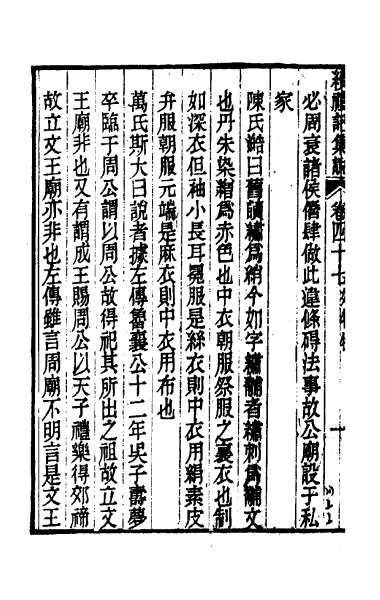 續禮記集說 卷四十七 郊特牲
必周衰諸侯僭肆做此違條碍法事故公廟設于私
家
陳氏澔曰舊讀繡爲綃今如字繡黼者繡刺爲黼文
也丹朱染繒爲赤色也中衣朝服祭服之裏衣也制
如深衣但袖小長耳冕服是絲衣則中衣用絹素皮
弁服朝服元端是麻衣則中衣用布也
萬氏斯大曰說者據左傳魯襄公十二年吳子壽夢
卒臨于周公謂以周公故得祀其所出之祖故立文
王廟非也又有謂成王賜周公以天子禮樂得郊禘
故立文王廟亦非也左傳雖言周廟不明言是文王